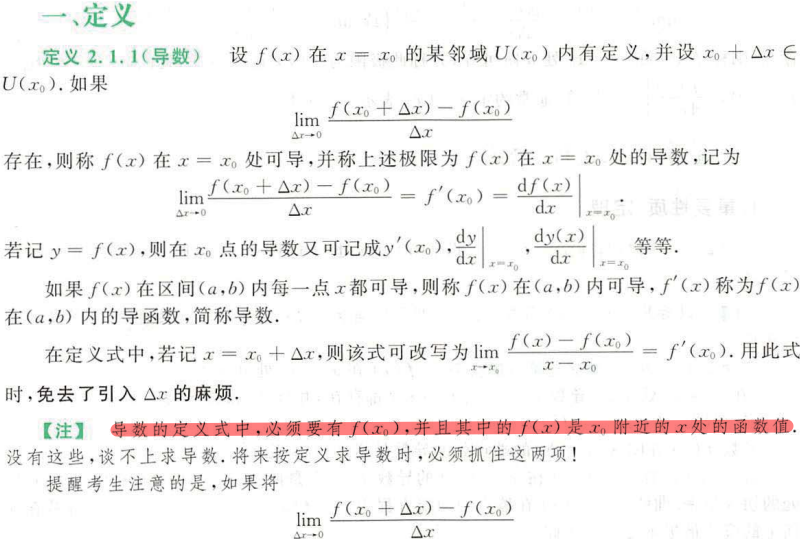 一、定义
定义 2.1.1(导数) 设 f(x) 在 x = x₀ 的某邻域 U(x₀) 内有定义,并设 x₀ + Δx ∈
U(x₀). 如果
lim_{Δx→0} \frac{f(x₀ + Δx) − f(x₀)}{Δx}
存在,则称 f(x) 在 x = x₀ 处可导,并称上述极限为 f(x) 在 x = x₀ 处的导数,记为
lim_{Δx→0} \frac{f(x₀ + Δx) − f(x₀)}{Δx} = f′(x₀) = \frac{df(x)}{dx}|_{x=x₀}.
若记 y = f(x),则在 x₀ 点的导数又可记成 y′(x₀), \frac{dy}{dx}|_{x=x₀}, \frac{dy(x)}{dx}|_{x=x₀} 等等.
如果 f(x) 在区间(a,b) 内每一点 x 都可导,则称 f(x) 在(a,b) 内可导, f′(x) 称为 f(x)
在(a,b) 内的导函数,简称导数.
在定义式中,若记 x = x₀ + Δx,则该式可改写为 lim_{x→x₀} \frac{f(x) − f(x₀)}{x − x₀} = f′(x₀). 用此式
时,免去了引入 Δx 的麻烦.
【注】 导数的定义式中,必须要有 f(x₀),并且其中的 f(x) 是 x₀ 附近的 x 处的函数值.
没有这些,谈不上求导数. 将来按定义求导数时,必须抓住这两项!
提醒考生注意的是,如果将
lim_{Δx→0} \frac{f(x₀ + Δx) − f(x₀)}{Δx}